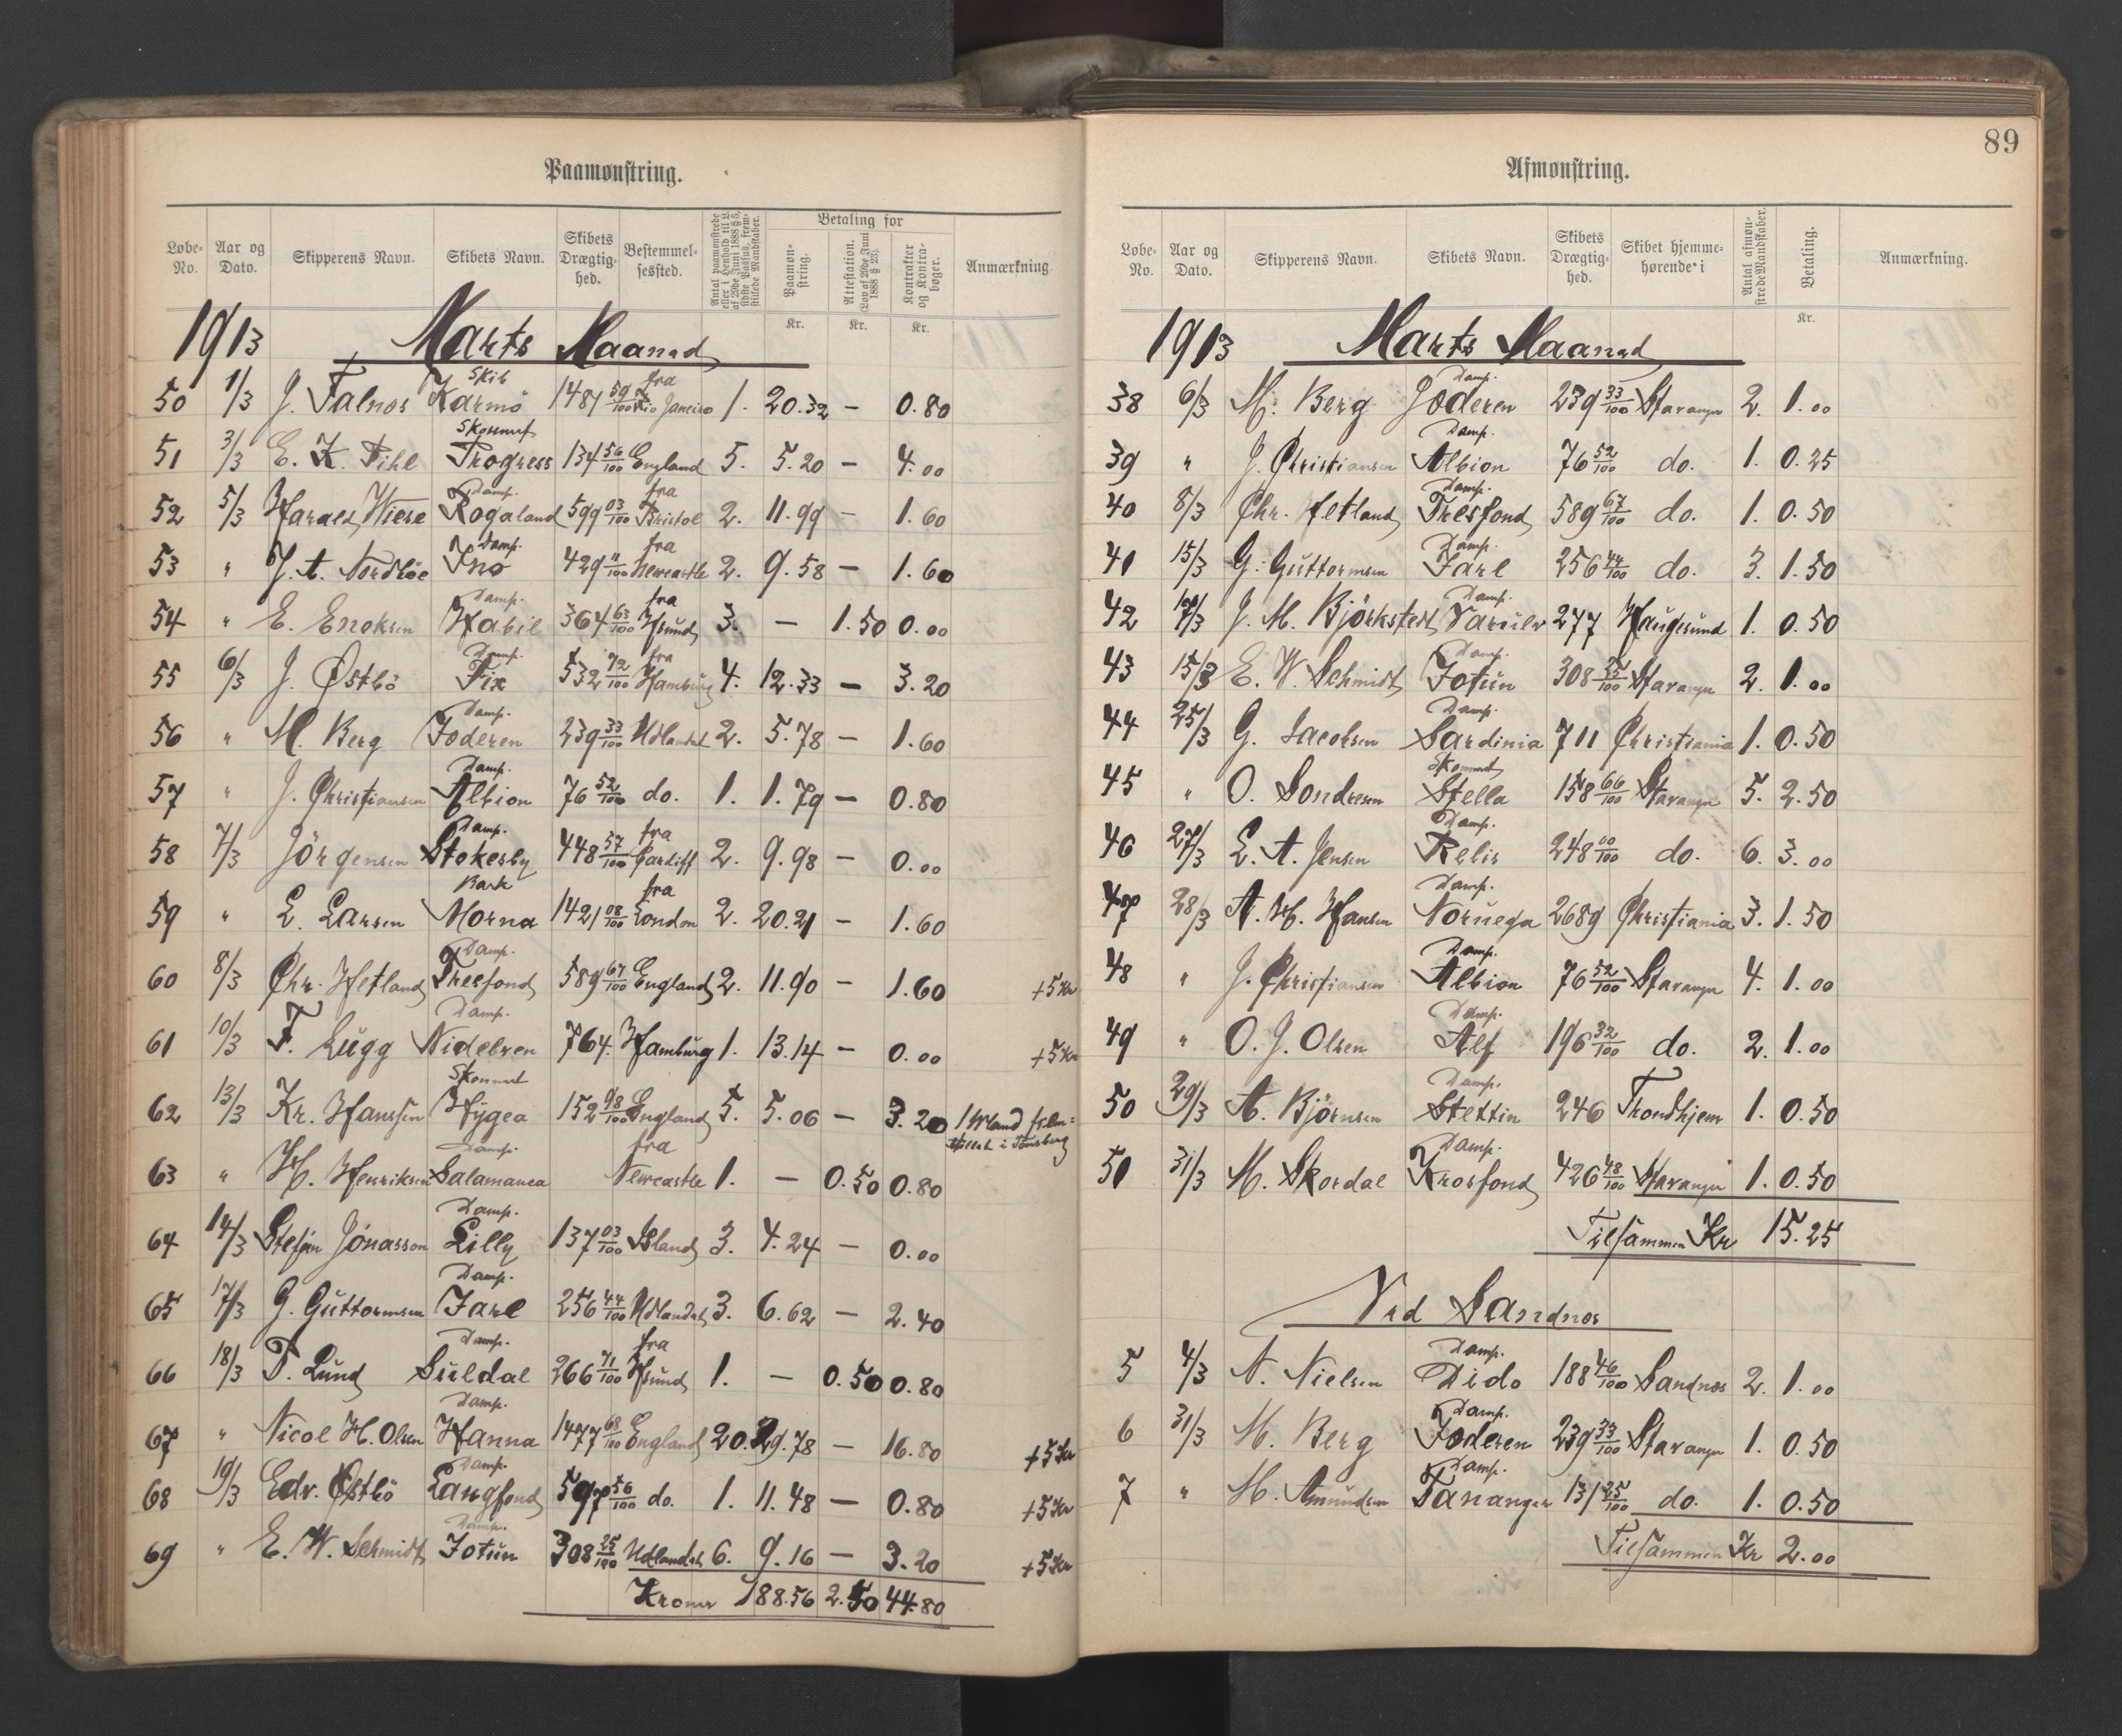 Paamønstring.
Løbe-No. Aar og Dato. Skipperens Navn. Skibets Navn. Skibets Drægtighed. Bestemmelsessted. Antal paamønstrede eller i Henhold til L. af 29de Juni 1888 § 5, sidste Passus, fremstillede Mandskaber. Betaling for Paamønstring. Attestation. (Lov af 29de Juni 1888 § 23). Kontrakter og Kontrabøger. Anmærkning
Kr. Kr. Kr.
1913 Marts Maaned
50 1/3 J. Falnes Skib Karmø 1481 59/100 fra Rio Janeiro 1. 20.32 — 0.80
51 3/3 E. K. Pihl Skonnert Progress 134 56/100 England 5. 5.20 — 4.00
52 5/3 Harald Wiese Damp. Rogaland 599 03/100 fra Bristol 2. 11.99 — 1.60
53 " J. A. Nordböe Damp. Ino 429 11/100 fra Newcastle 2. 9.58 — 1.60
54 " E. Enoksen Damp. Habil 364 63/100 fra Hsund 3. — 1.50 0.00
55 6/3 J. Østbö Damp. Fix 532 72/100 fra Hamburg 4. 12.33 — 3.20
56 " M. Berg Damp. Joderen 239 33/100 Udlandet 2. 5.78 — 1.60
57 " J. Christiansen Damp. Albion 76 52/100 do. 1. 1.79 — 0.80
58 7/3 Jörgensen Damp. Stokesby 448 57/100 fra Cardiff 2. 9.98 — 0.00
59 " L. Larsen Bark Morna 1421 08/100 fra London 2. 20.21 — 1.60
60 8/3 Chr. Hetland Damp. Tresfond 589 67/100 England 2. 11.90 — 1.60 +5 Kr
61 10/3 F. Lugg Damp. Nidelven 764. Hamburg 1. 13.14 — 0.00 +5 Kr
62 13/3 Kr. Hanssen Skonnert Hygea 152 98/100 England 5. 5.06 — 3.20 1 Mand frem=
stillet i Tønsberg
63 " H. Henriksen Damp. Salamanca fra Newcastle 1. — 0.50 0.80
64 14/3 Stefán Jónasson Damp. Lilly 137 03/100 Island 3. 4.24 — 0.00
65 17/3 G. Guttormsen Damp. Jarl 256 44/100 Udlandet 3. 6.62 — 2.40
66 18/3 T. Lund Damp. Suldal 266 71/100 fra Hsund 1. — 0.50 0.80
67 " Nicol H. Olsen Damp. Hanna 1477 68/100 England 20. 29.78 — 16.80 +5 Kr
68 19/3 Edv. Østbö Damp. Langfond 597 56/100 do. 1. 11.48 — 0.80 +5 Kr
69 " E. W. Schmidt Damp. Jotun 308 25/100 Udlandet 6. 9.16 — 3.20 +5 Kr
Kroner 188.56 2.50 44.80
89
Afmønstring.
Løbe-No. Aar og Dato. Skipperens Navn. Skibets Navn. Skibets Drægtighed. Skibet hjemmehørende i Antal afmønstrede Mandskaber. Betaling. Anmærkning.
Kr.
1913 Marts Maaned
38 6/3 M. Berg Damp. Joderen 239 33/100 Stavanger 2. 1.00
39 " J. Christiansen Damp. Albion 76 52/100 do. 1. 0.25
40 8/3 Chr. Hetland Damp. Tresfond 589 67/100 do. 1. 0.50
41 15/3 G. Guttormsen Damp. Jarl 256 44/100 do. 3. 1.50
42 17/3 J. M. Björkstedt Damp. Varulv 277 Haugesund 1. 0.50
43 15/3 E. W. Schmidt Damp. Jotun 308 25/100 Stavanger 2. 1.00
44 25/3 G. Jacobsen Damp. Sardinia 711 Christiania 1. 0.50
45 " O. Sondresen Skonnert Stella 158 66/100 Stavanger 5. 2.50
46 27/3 L. A. Jensen Damp. Relis 248 00/100 do. 6. 3.00
47 28/3 A. H. Hansen Damp. Noruega 2689 Christiania 3. 1.50
48 " J. Christiansen Damp. Albion 76 52/100 Stavanger 4. 1.00
49 " O. J. Olsen Damp. Alf 196 32/100 do. 2. 1.00
50 29/3 A. Björnsen Damp. Stettin 246 Trondhjem 1. 0.50
51 31/3 M. Skordal Damp. Krosfond 426 48/100 Stavanger 1. 0.50
Tilsammen Kr 15.25
Ved Sandnes
5 4/3 N. Nielsen Damp. Dido 188 46/100 Sandnes 2. 1.00
6 31/3 M. Berg Damp. Joderen 239 33/100 Stavanger 1. 0.50
7 " M. Amundsen Damp. Tananger 131 25/100 do. 1. 0.50
Tilsammen Kr 2.00